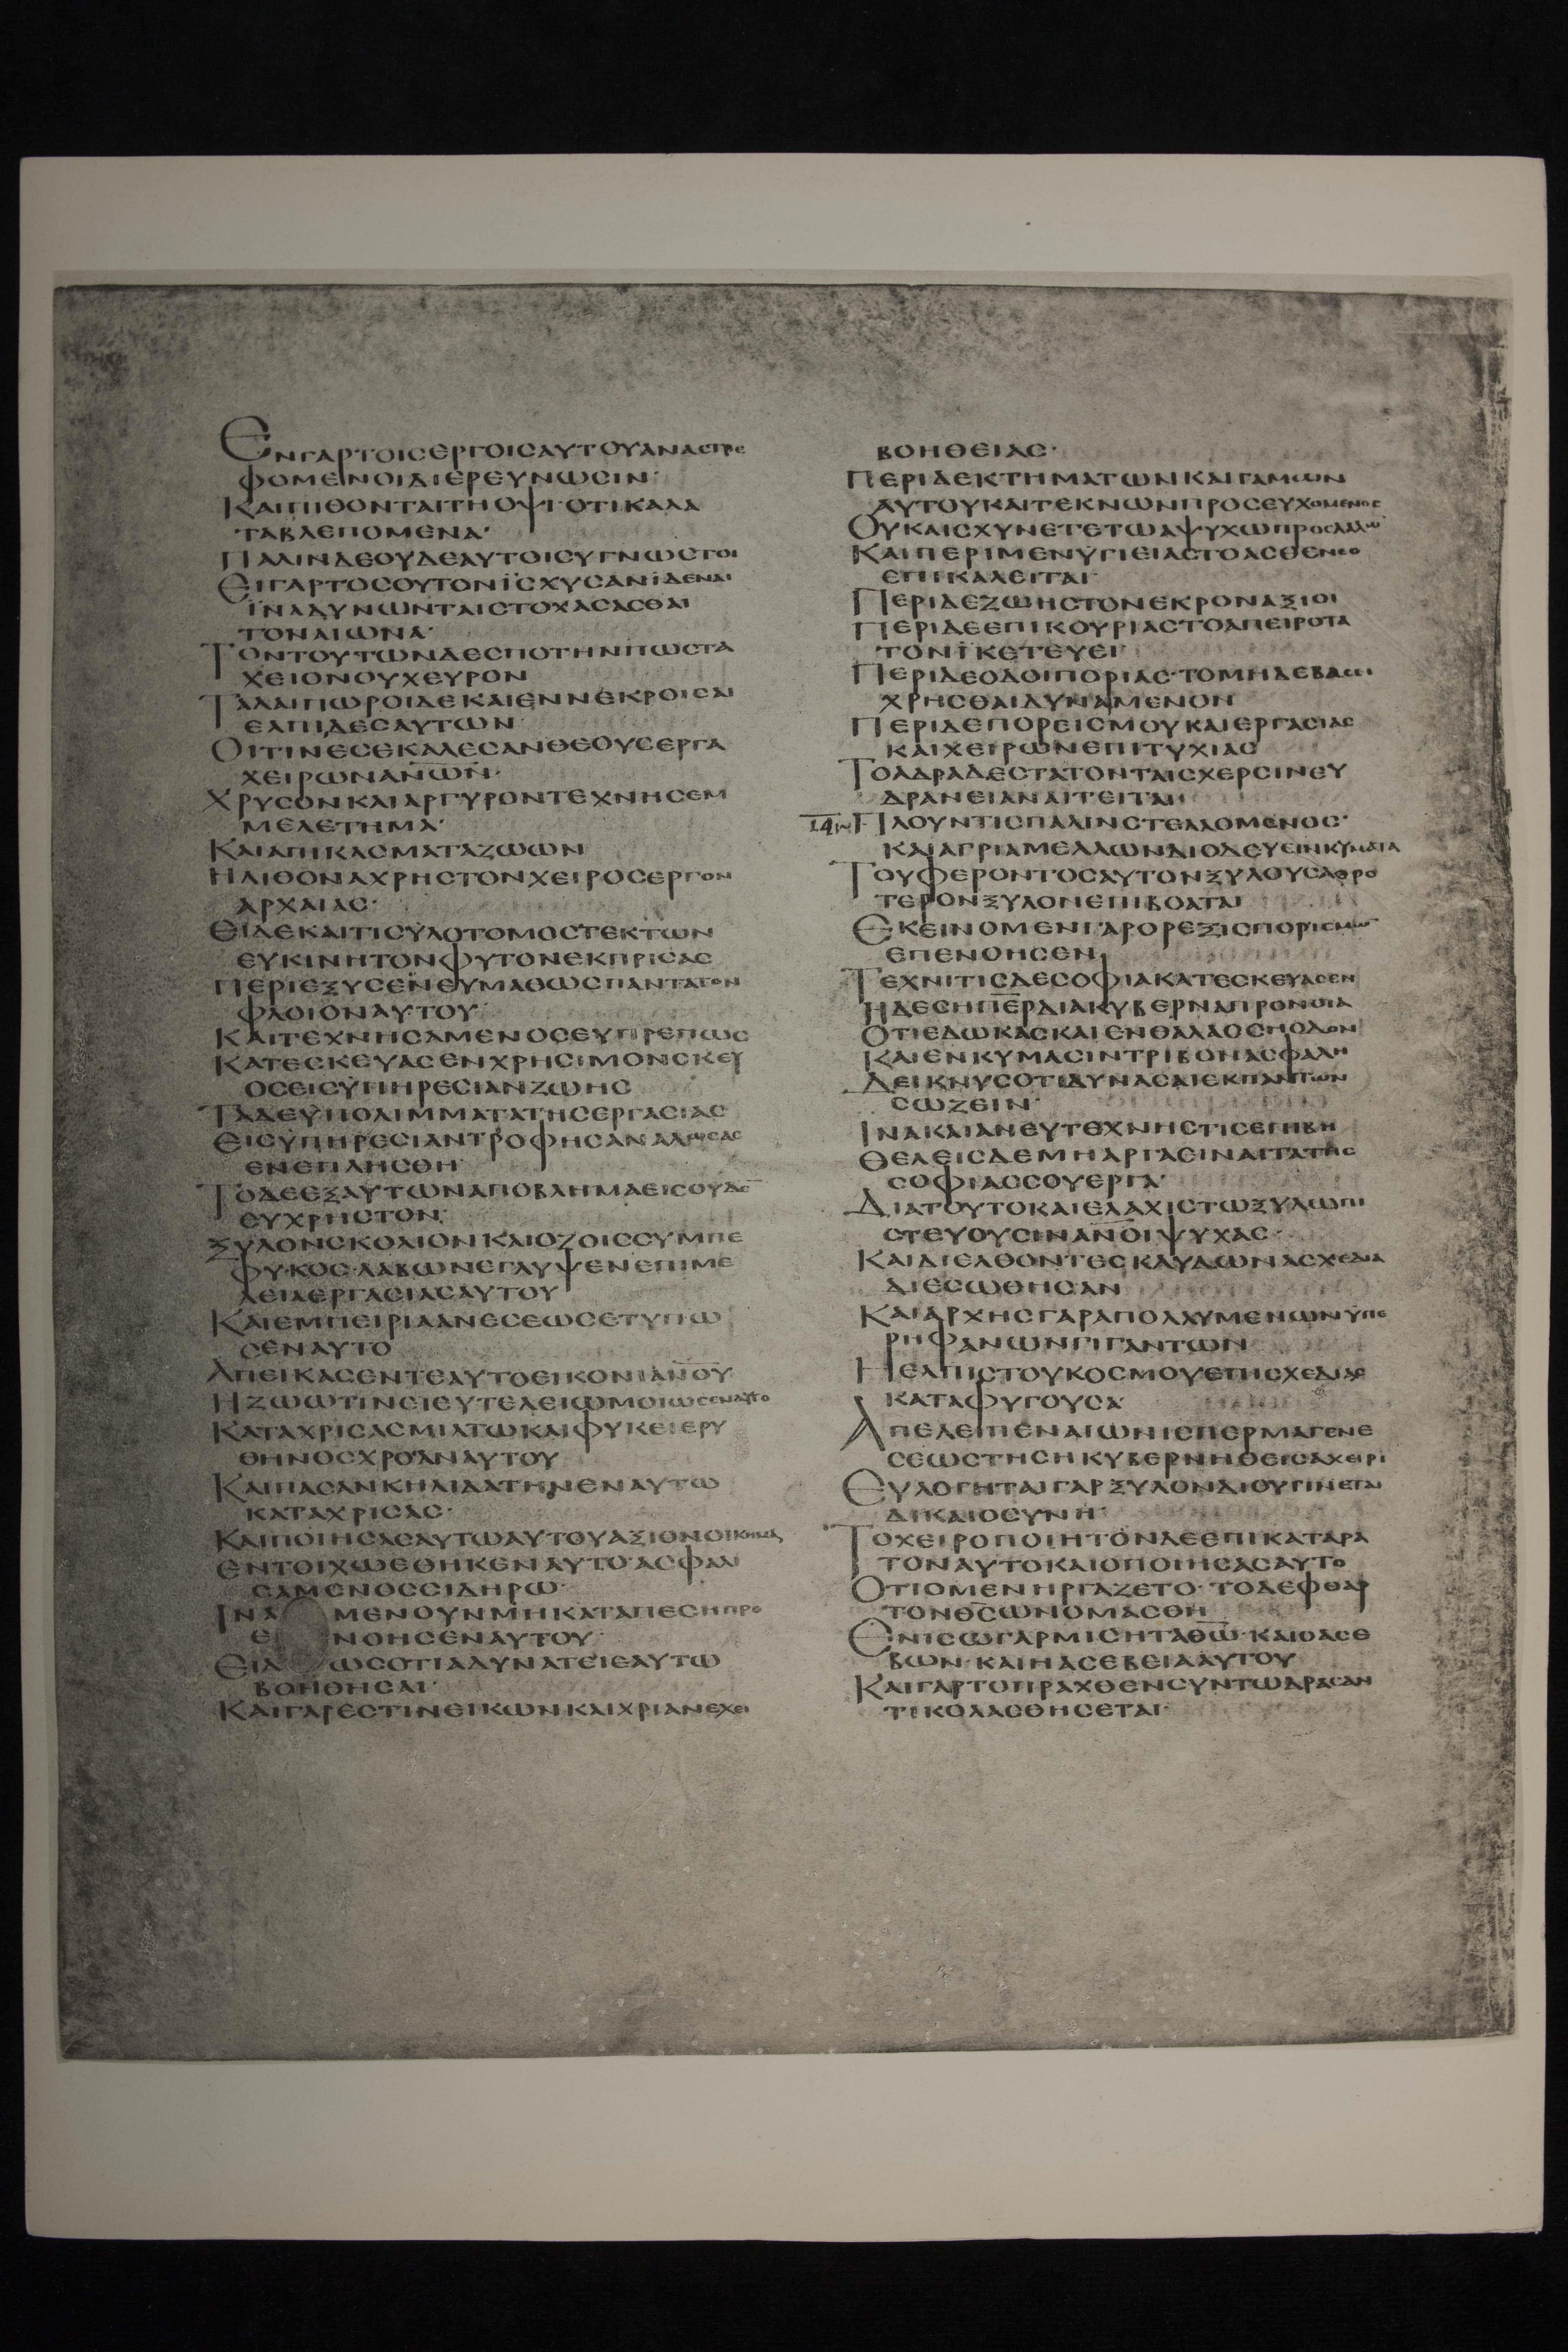 ΕΝΓΑΡΤΟΙСΕΡΓΟΙСΑΥΤΟΥΑΝΑСΤΡΕ
ΦΟΜΕΝΟΙΔΙΕΡΕΥΝΩСΙΝ·
ΚΑΙΠΙΘΟΝΤΑΙΤΗΟΨΙ·ΟΤΙΚΑΛΑ
ΤΑΒΛΕΠΟΜΕΝΑ·
ΠΑΛΙΝΔΕΟΥΔΕΑΥΤΟΙСΥΓΝΩСΤΟΙ
ΕΙΓΑΡΤΟСΟΥΤΟΝΪСΧΥСΑΝΪΔΕΝΑΙ
ΪΝΑΔΥΝΩΝΤΑΙСΤΟΧΑСΑСΘΑΙ
ΤΟΝΑΙΩΝΑ·
ΤΟΝΤΟΥΤΩΝΔΕСΠΟΤΗΝΠΩСΤΑ
ΧΕΙΟΝΟΥΧΕΥΡΟΝ
ΤΑΛΑΙΠΩΡΟΙΔΕΚΑΙΕΝΝΕΚΡΟΙСΑΙ
ΕΛΠΙΔΕСΑΥΤΩΝ·
ΟΙΤΙΝΕСΕΚΑΛΕСΑΝΘΕΟΥСΕΡΓΑ
ΧΕΙΡΩΝΑΝ̅Ω̅Ν̅·
ΧΡΥСΟΝΚΑΙΑΡΓΥΡΟΝΤΕΧΝΗСΕΜ
ΜΕΛΕΤΗΜΑ·
ΚΑΙΑΠΙΚΑСΜΑΤΑΖΩΩΝ
ΗΛΙΘΟΝΑΧΡΗСΤΟΝΧΕΙΡΟСΕΡΓΟΝ
ΑΡΧΑΙΑС·
ΕΙΔΕΚΑΙΤΙСΫΛΟΤΟΜΟСΤΕΚΤΩΝ
ΕΥΚΙΝΗΤΟΝΦΥΤΟΝΕΚΠΡΙСΑС
ΠΕΡΙΕΞΥСΕΝΕΥΜΑΘΩСΠΑΝΤΑΤΟΝ
ΦΛΟΙΟΝΑΥΤΟΥ·
ΚΑΙΤΕΧΝΗСΑΜΕΝΟСΕΥΠΡΕΠΩС
ΚΑΤΕСΚΕΥΑСΕΝΧΡΗСΙΜΟΝСΚΕΥ
ΟСΕΙСΫΠΗΡΕСΙΑΝΖΩΗС
ΤΑΔΕΫΠΟΛΙΜΜΑΤΑΤΗСΕΡΓΑСΙΑС
ΕΙСΫΠΗΡΕСΙΑΝΤΡΟΦΗСΑΝΑΛΩСΑС
ΕΝΕΠΛΗСΘΗ·
ΤΟΔΕΕΞΑΥΤΩΝΑΠΟΒΛΗΜΑΕΙСΟΥΔΕ̅
ΕΥΧΡΗСΤΟΝ·
ΞΥΛΟΝСΚΟΛΙΟΝΚΑΙΟΖΟΙССΥΜΠΕ
ΦΥΚΟС·ΛΑΒΩΝΕΓΛΥΨΕΝΕΠΙΜΕ
ΛΕΙΑΕΡΓΑСΙΑСΑΥΤΟΥ
ΚΑΙΕΜΠΕΙΡΙΑΑΝΕСΕΩСΕΤΥΠΩ
СΕΝΑΥΤΟ
ΑΠΕΙΚΑСΕΝΤΕΑΥΤΟΕΙΚΟΝΙΑΝ̅Ο̅Υ̅
ΗΖΩΩΤΙΝΕΙΕΥΤΕΛΕΙΩΜΟΙΩСΕΝΑΥΤΟ
ΚΑΤΑΧΡΙСΑСΜΙΛΤΩΚΑΙΦΥΚΕΙΕΡΥ
ΘΗΝΟСΧΡΟΑΝΑΥΤΟΥ
ΚΑΙΠΑСΑΝΚΗΛΙΔΑΤΗΝΕΝΑΥΤΩ
ΚΑΤΑΧΡΙСΑС·
ΚΑΙΠΟΙΗСΑСΑΥΤΩΑΥΤΟΥΑΞΙΟΝΟΙΚΗΜΑ
ΕΝΤΟΙΧΩΕΘΗΚΕΝΑΥΤΟ·ΑСΦΑΛΙ
СΑΜΕΝΟССΙΔΗΡΩ·
ΙΝΑ ΜΕΝΟΥΝΜΗΚΑΤΑΠΕСΗΠΡΟ
Ε ΝΟΗСΕΝΑΥΤΟΥ·
ΕΙΔ ΩСΟΤΙΑΔΥΝΑΤΕΙΕΑΥΤΩ
ΒΟΗΘΗСΑΙ·
ΚΑΙΓΑΡΕСΤΙΝΕΙΚΩΝΚΑΙΧΡΙΑΝΕΧΕΙ
ΒΟΗΘΕΙΑС·
ΠΕΡΙΔΕΚΤΗΜΑΤΩΝΚΑΙΓΑΜΩΝ
ΑΥΤΟΥΚΑΙΤΕΚΝΩΝΠΡΟСΕΥΧΟΜΕΝΟС
ΟΥΚΑΙСΧΥΝΕΤΕΤΩΑΨΥΧΩΠΡΟСΛΑΛΩ̅
ΚΑΙΠΕΡΙΜΕΝΫΓΙΕΙΑСΤΟΑСΘΕΝΕС
ΕΠΙΚΑΛΕΙΤΑΙ·
ΠΕΡΙΔΕΖΩΗСΤΟΝΕΚΡΟΝΑΞΙΟΙ
ΠΕΡΙΔΕΕΠΙΚΟΥΡΙΑСΤΟΑΠΕΙΡΟΤΑ
ΤΟΝΪΚΕΤΕΥΕΙ
ΠΕΡΙΔΕΟΔΟΙΠΟΡΙΑС·ΤΟΜΗΔΕΒΑСΙ
ΧΡΗСΘΑΙΔΥΝΑΜΕΝΟΝ
ΠΕΡΙΔΕΠΟΡΕΙСΜΟΥΚΑΙΕΡΓΑСΙΑС
ΚΑΙΧΕΙΡΩΝΕΠΙΤΥΧΙΑС
ΤΟΑΔΡΑΔΕСΤΑΤΟΝΤΑΙСΧΕΡСΙΝΕΥ
ΔΡΑΝΕΙΑΝΑΙΤΕΙΤΑΙ·
ΠΛΟΥΝΤΙСΠΑΛΙΝСΤΕΛΛΟΜΕΝΟС·
ΚΑΙΑΓΡΙΑΜΕΛΛΩΝΔΙΟΔΕΥΕΙΝΚΥΜΑΤΑ
ΤΟΥΦΕΡΟΝΤΟСΑΥΤΟΝΞΥΛΟΥСΑΘΡΟ
ΤΕΡΟΝΞΥΛΟΝΕΠΙΒΟΑΤΑΙ
ΕΚΕΙΝΟΜΕΝΓΑΡΟΡΕΞΙСΠΟΡΙСΜΩ̅
ΕΠΕΝΟΗСΕΝ
ΤΕΧΝΙΤΙСΔΕСΟΦΙΑΚΑΤΕСΚΕΥΑСΕΝ
ΗΔΕСΗΠ̅Ε̅Ρ̅ΔΙΑΚΥΒΕΡΝΑΠΡΟΝΟΙΑ
ΟΤΙΕΔΩΚΑСΚΑΙΕΝΘΑΛΑССΗΟΔΟΝ
ΚΑΙΕΝΚΥΜΑСΙΝΤΡΙΒΟΝΑСΦΑΛΗ
ΔΕΙΚΝΥСΟΤΙΔΥΝΑСΑΙΕΚΠΑΝΤΩΝ
СΩΖΕΙΝ·
ΙΝΑΚΑΙΑΝΕΥΤΕΧΝΗСΤΙСΕΠΙΒΗ
ΘΕΛΕΙСΔΕΜΗΑΡΓΑΕΙΝΑΙΤΑΤΗС
СΟΦΙΑССΟΥΕΡΓΑ·
ΔΙΑΤΟΥΤΟΚΑΙΕΛΑΧΙСΤΩΞΥΛΩΠΙ
СΤΕΥΟΥСΙΝΑΝ̅Ο̅Ι̅ΨΥΧΑС·
ΚΑΙΔΙΕΛΘΟΝΤΕСΚΛΥΔΩΝΑСΧΕΔΙΑ
ΔΙΕСΩΘΗСΑΝ
ΚΑΙΑΡΧΗСΓΑΡΑΠΟΛΛΥΜΕΝΩΝΫΠΕ
ΡΗΦΑΝΩΝΓΙΓΑΝΤΩΝ
ΗΕΛΠΙСΤΟΥΚΟСΜΟΥΕΠΙСΧΕΔΙΑС
ΚΑΤΑΦΥΓΟΥСΑ·
ΑΠΕΛΕΙΠΕΝΑΙΩΝΙСΠΕΡΜΑΓΕΝΕ
СΕΩСΤΗСΗΚΥΒΕΡΝΗΘΕΙСΑΧΕΙΡΙ
ΕΥΛΟΓΗΤΑΙΓΑΡΞΥΛΟΝΔΙΟΥΓΙΝΕΤΑΙ
ΔΙΚΑΙΟСΥΝΗ·
ΤΟΧΕΙΡΟΠΟΙΗΤΟΝΔΕΕΠΙΚΑΤΑΡΑ
ΤΟΝΑΥΤΟΚΑΙΟΠΟΙΗСΑСΑΥΤΟ
ΟΤΙΟΜΕΝΗΡΓΑΖΕΤΟ·ΤΟΔΕΦΘΑΡ
ΤΟΝΘ̅С̅ΩΝΟΜΑСΘΗ
ΕΝΙСΩΓΑΡΜΙСΗΤΑΘ̅Ω̅·ΚΑΙΟΑСΕ
ΒΩΝ·ΚΑΙΗΑСΕΒΕΙΑΑΥΤΟΥ
ΚΑΙΓΑΡΤΟΠΡΑΧΘΕΝСΥΝΤΩΔΡΑСΑΝ
ΤΙΚΟΛΑСΘΗСΕΤΑΙ·